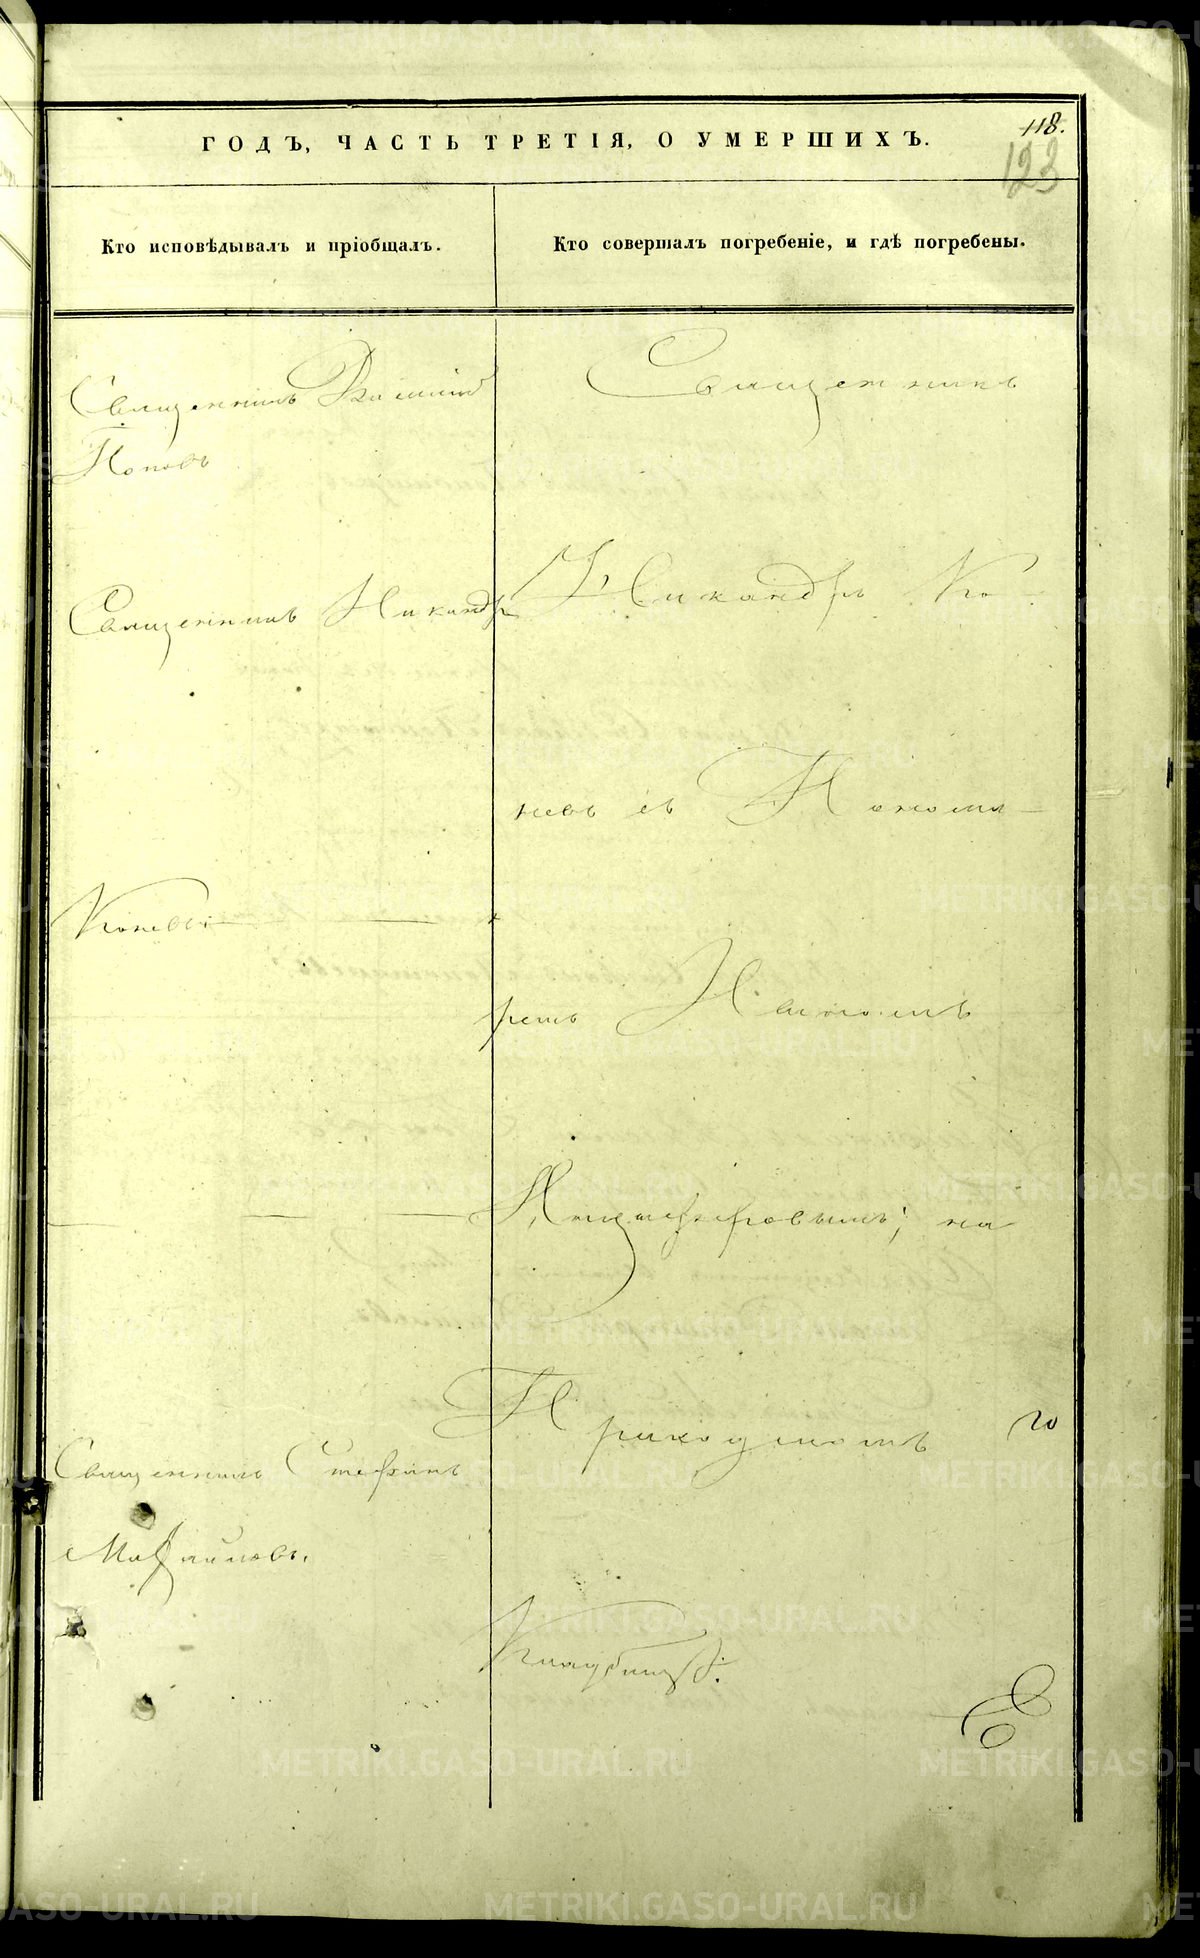 118.
123
ГОДЪ, ЧАСТЬ ТРЕТІЯ, О УМЕРШИХЪ.
Кто исповѣдывалъ и пріобщалъ.
Священникъ
Поповъ
Священникъ Никандръ
Коневъ
Священникъ Стефанъ
Михайловъ.
Кто совершалъ погребеніе, и гдѣ погребены.
Священникъ
Никандръ Ко-
невъ съ Понома-
ремъ
на
Приходскомъ
Кладбищѣ.
METRIKI.GASO-URAL.RU